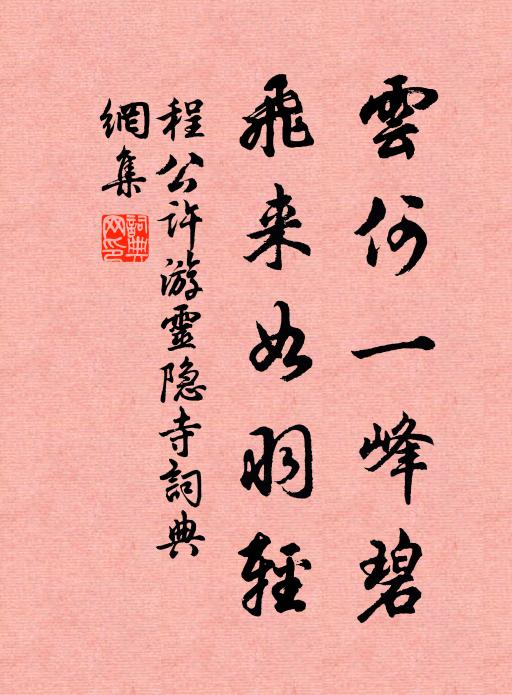 雲何一峰碧
飛来如羽輕
程公許游靈隐寺詞典
網集
詞典網印